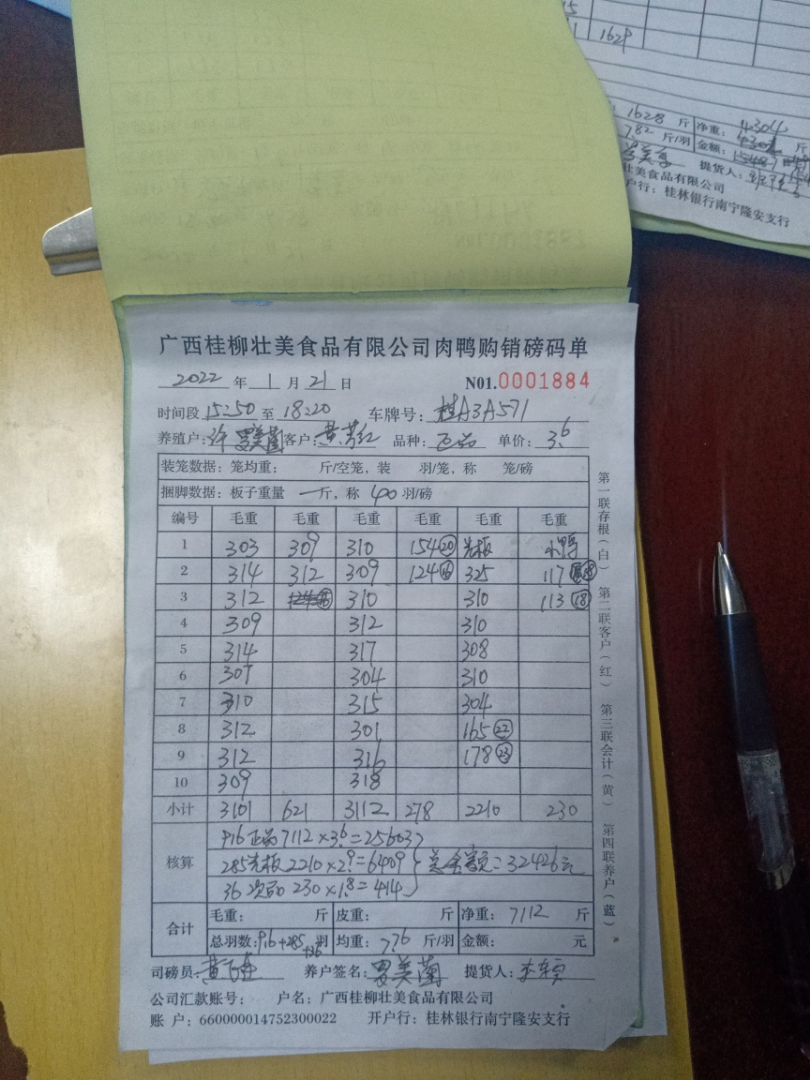 1629
1628 斤 净重: 4304
7.82 斤/羽 金额:
提货人:
壮美食品有限公司
户行: 桂林银行南宁隆安支行
广西桂柳壮美食品有限公司肉鸭购销磅码单
2022 年 1 月 21 日 N01.0001884
时间段 15:50 至 18:20 车牌号: 桂A3A571
养殖户: 许 罗美兰 客户: 黄 红 品种: 正品 单价: 3.6
装笼数据: 笼均重: 斤/空笼, 装 羽/笼, 称 笼/磅
捆脚数据: 板子重量 一 斤, 称 40 羽/磅
编号 毛重 毛重 毛重 毛重 毛重 毛重
1 303 309 310 154⑳ 光板
2 314 312 309 124⑯ 325 117
3 312 310 310 113⑱
4 309 312 310
5 314 317 308
6 307 304 310
7 310 315 304
8 312 301 165㉒
9 312 316 178㉓
10 309 318
小计 3101 621 3112 278 2210 230
核算
916 正品 7112×3.6=25603.7
285光板 2210×2.9=6409 总金额=32426元
36 次品 230×1.8=414
合计 毛重: 斤 皮重: 斤 净重: 7112 斤
总羽数: 916+285+36 羽 均重: 7.76 斤/羽 金额: 元
司磅员: 黄 养户签名: 罗美兰 提货人: 李
公司汇款账号: 户名: 广西桂柳壮美食品有限公司
账 户: 660000014752300022 开户行: 桂林银行南宁隆安支行
第一联存根(白) 第二联客户(红) 第三联会计(黄) 第四联养户(蓝)